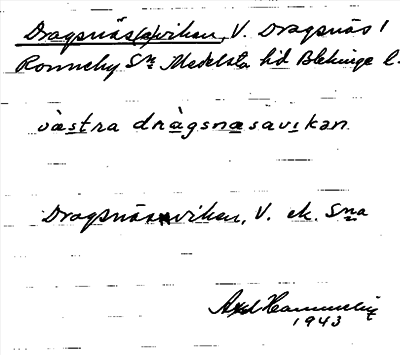 Dragsnäs(a)viken, V. Dragsnäs 1
Ronneby Sn Medelsta hd Blekinge l.
västra dràgsnæsavikan
Dragsnäsviken, V. ek. Sna
Axel Hammelin
1943